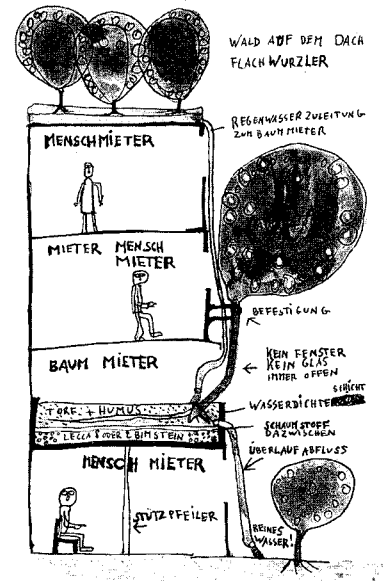 WALD AUF DEM DACH
FLACHWURZLER
REGENWASSERZULEITUNG
ZUM BAUMMIETER
MENSCHMIETER
MIETER MENSCH
MIETER
BEFESTIGUNG
BAUM MIETER
KEIN FENSTER
KEIN GLAS
IMMER OFFEN
WASSERDICHTE SCHICHT
TORF + HUMUS
SCHAUMSTOFF
DAZWISCHEN
LECCA ODER BIMSTEIN
ÜBERLAUFABFLUSS
MENSCH MIETER
STÜTZPFEILER
REINES
WASSER!